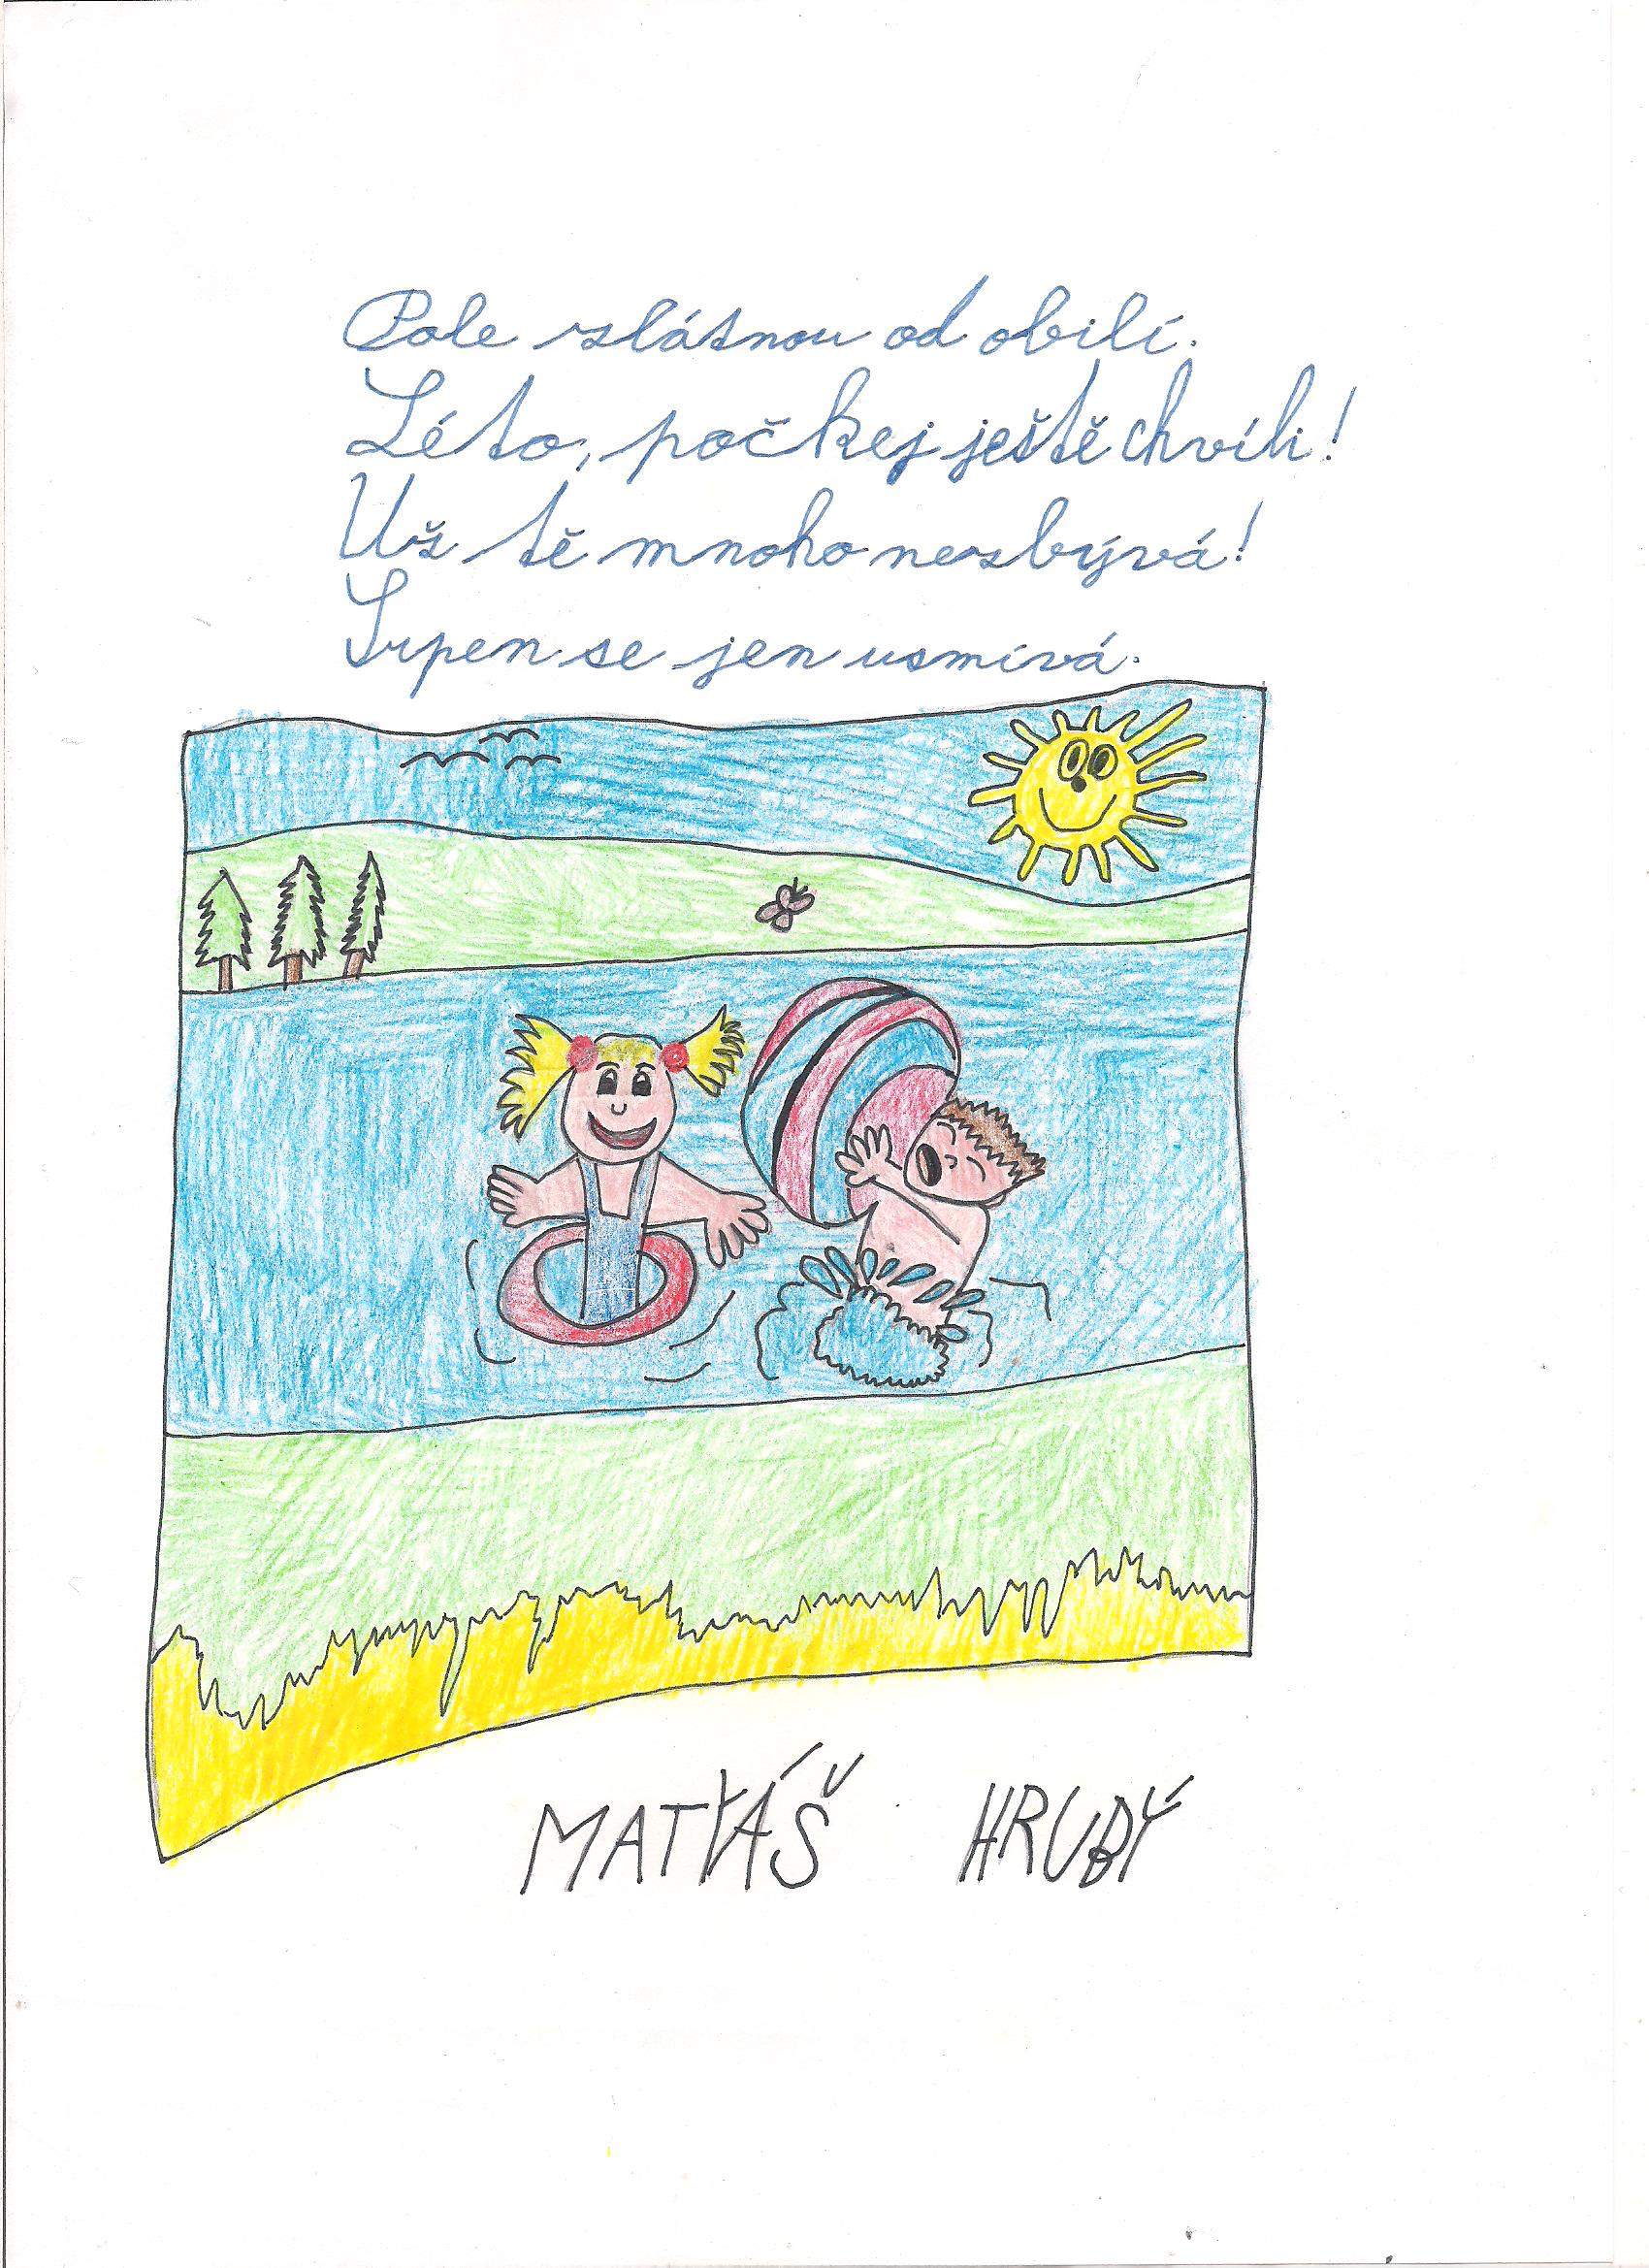 Pole zlátnou od obilí.
Léto, počkej ještě chvíli!
Už tě mnoho nezbývá!
Srpen se jen usmívá.
MATYÁŠ HRUBÝ